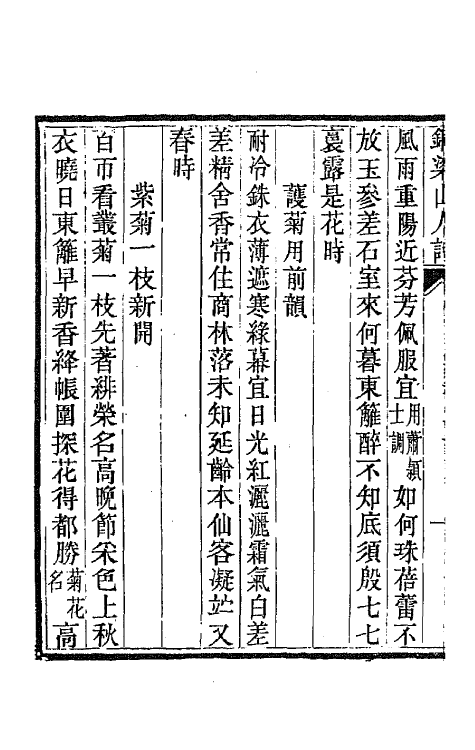 風雨重陽近芬芳佩服宜用蕭穎士調如何珠蓓蕾不
放玉參差石室來何暮東籬醉不知底須殷七七
裛露是花時
護菊用前韻
耐冷銖衣薄遮寒綠幕宜日光紅灑灑霜氣白差
差精舍香常住商林落未知延齡本仙客凝竚又
春時
紫菊一枝新開
百帀看叢菊一枝先著緋榮名高晚節采色上秋
衣曉日東籬早新香絳帳圍探花得都勝菊花名高